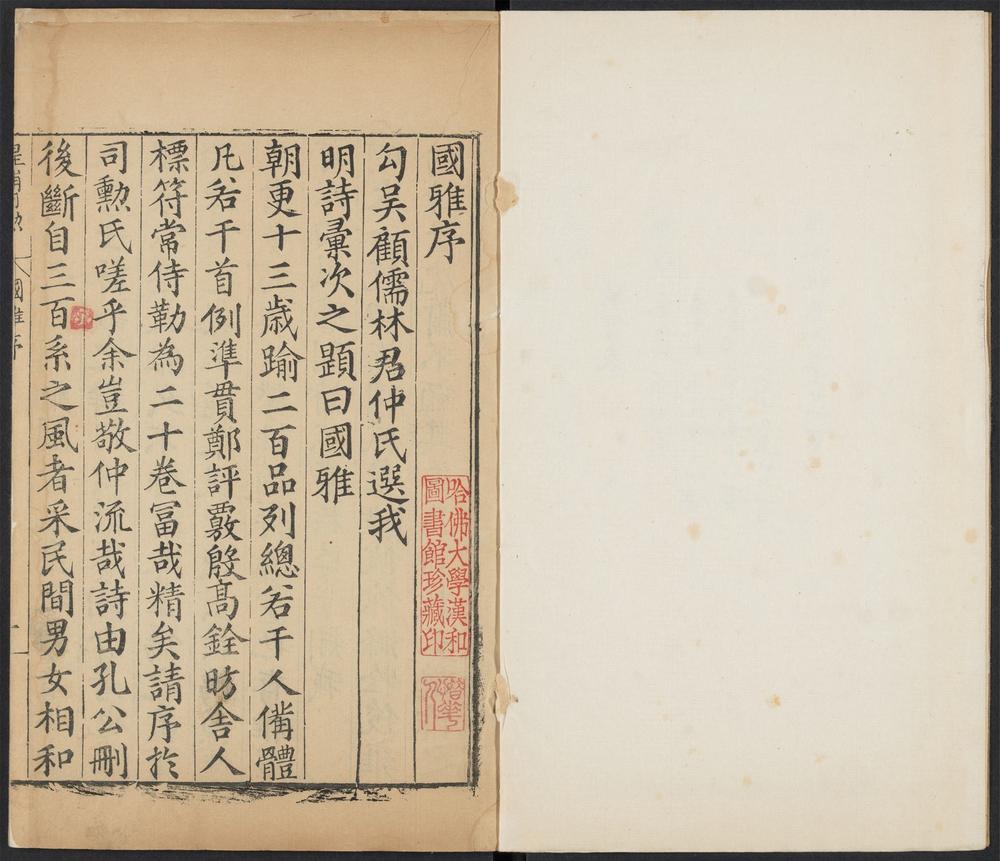 國雅序
勾吴顧儒林君仲氏選我
明詩彚次之題曰國雅
朝更十三歳踰二百品列總若干人備體
凡若干首例準貫鄭評覈殷髙銓昉舍人
標符常侍勒為二十卷冨哉精矣請序扵
司勲氏嗟乎余豈敬仲流哉詩由孔公刪
後斷自三百系之風者采民間男女相和
國雅序
一
哈佛大學漢和
圖書館珍藏印